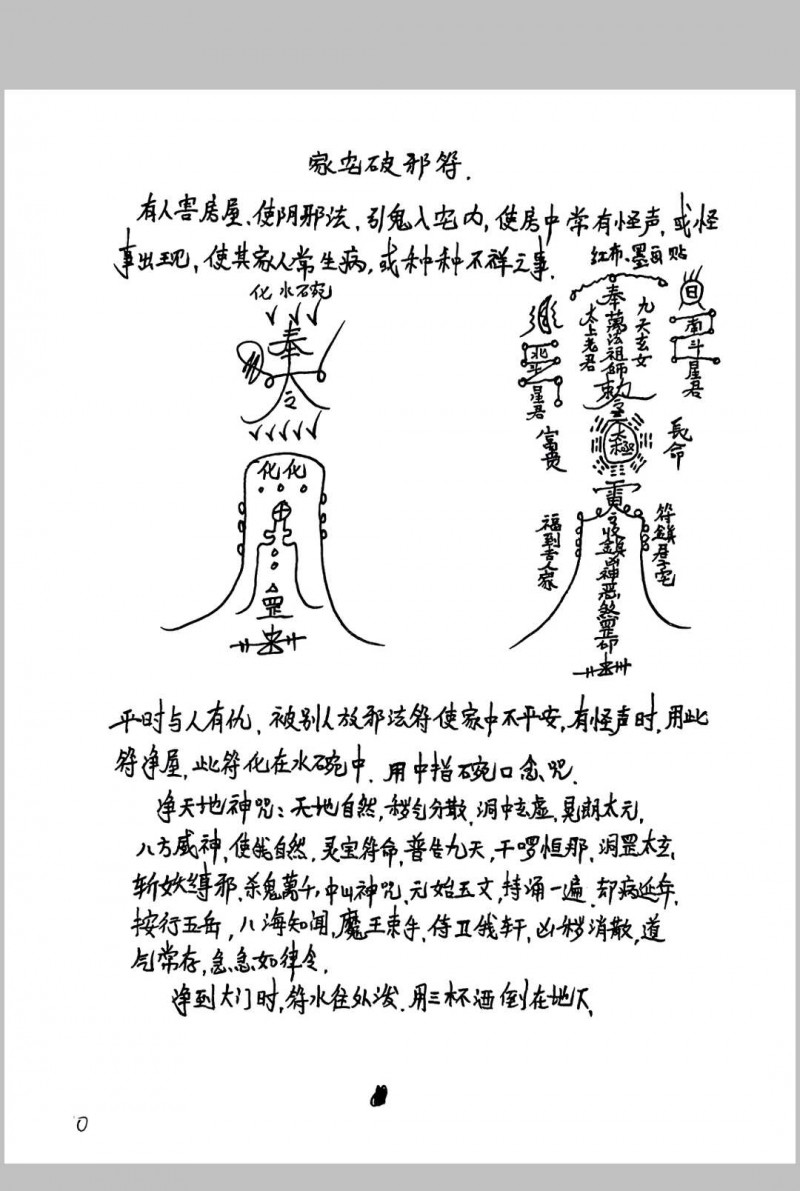 家宅破邪符.
有人害房屋、使阴邪法,引鬼入宅内,使房中常有怪声,或怪
事出现,使其家人常生病,或种种不祥之事.
红布、墨画贴
化水碗
奉
令
化化
罡
日
南斗星君
九天玄女
奉萬法祖師敕令
太上老君
北斗星君
長命
太極
富贵
雷
符鎮君子宅
收鎮凶神惡煞罡印
福到吉人家
平时与人有仇、被别人放邪法符使家中不平安,有怪声时,用此
符净屋,此符化在水碗中.用中指碗口念咒.
净天地神咒:天地自然,秽气分散,洞中玄虚,晃朗太元,
八方威神,使我自然.灵宝符命,普告九天,干啰恒那,洞罡太玄,
斩妖缚邪.杀鬼萬千,中山神咒.元始玉文,持诵一遍.却病延年,
按行五岳,八海知闻,魔王束手,侍卫我轩,凶秽消散,道
气常存,急急如律令.
净到大门时,符水往外泼.用三杯洒倒在地下,
0